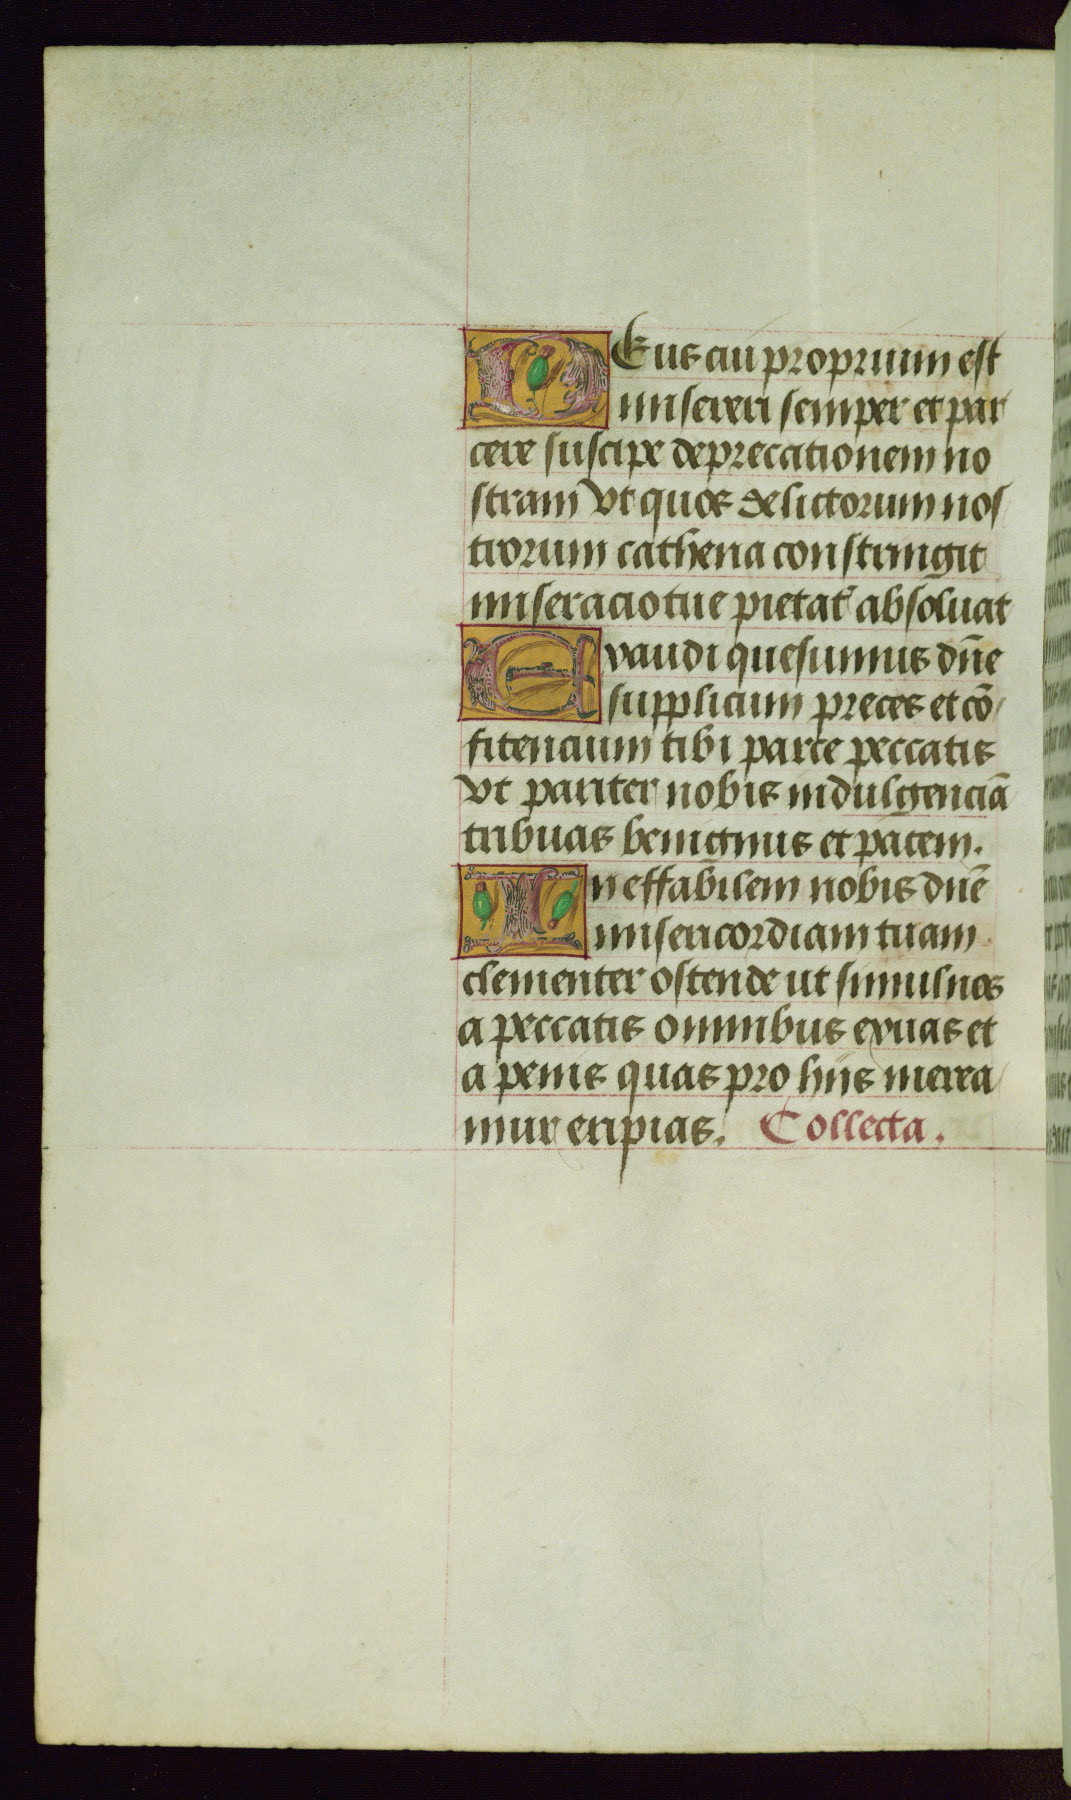 DEus cui proprium est
misereri semper et par
cere suscipe deprecationem no
stram Vt quos delictorum nos
trorum cathena constringit
miseracio tue pietat̾ absoluat
Exaudi quesumus dn̄e
supplicum preces et cō
fitencium tibi parce peccatis
Vt pariter nobis indulgenciā
tribuas benignus et pacem.
Ineffabilem nobis dn̄e
misericordiam tuam
clementer ostende ut simul nos
a peccatis omnibus exuas et
a penis quas pro hijs merea
mur eripias. Collecta.